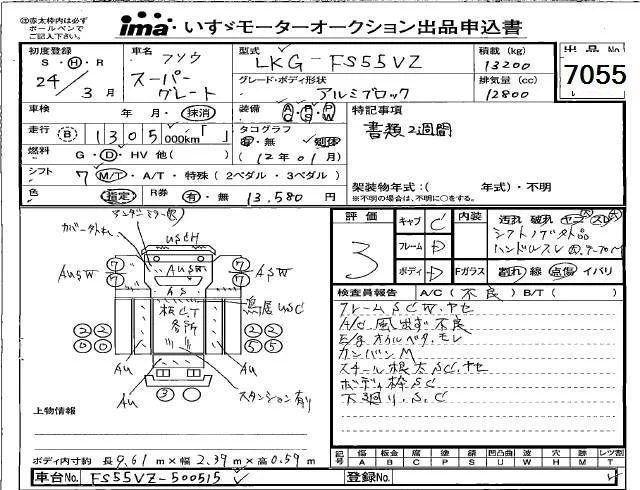 ㊟赤太枠内は必ず
ボールペンで
ご記入下さい。
ima いすゞモーターオークション出品申込書
初度登録 車名 フソウ 型式 LKG-FS55VZ 積載 (kg) 13200 出品No.
S・H・R 24/3月 スーパーグレート グレード・ボディ形状 アルミブロック 排気量 (cc) 12800 7055
車検 年 月・抹消 装備 A/C P/S P/W 特記事項
走行 B 1305,000km「 」 タコグラフ 有・無 書類2週間
燃料 G・D・HV 他( ) (12年01月)
シフト 7 M/T・A/T・特殊(2ペダル・3ペダル)
色 指定 R券 有・無 13.580円 架装物年式:( 年式)・不明
※不明の場合は、不明に○をする。
評価 3 キャブ C 内装 汚れ 破れ
フレーム D シフトノブ欠品
ボディ D Fガラス 割れ 線 点傷 イバリ
検査員報告 A/C(不良)B/T( )
フレームSCW.ヤセ
A/C風出ず不良
E/gオイルベタ.モレ
カンバンM
スチール根太SC.ヤセ
ボディ枠SC
下廻り.S.C
アンダーミラー
カバー外れ USCH
AUSW AUSW ASW
AS
鳥居USC
板CT
各所
AU AU
スタンション有り
上物情報
ボディ内寸約 長9.61m×幅2.39m×高0.59m
記号 傷A 凹B 板金 腐C 塗P 錆S 凹凸曲U 波W 穴H 跡M レツ割T
車台No. FS55VZ-500515 登録No.